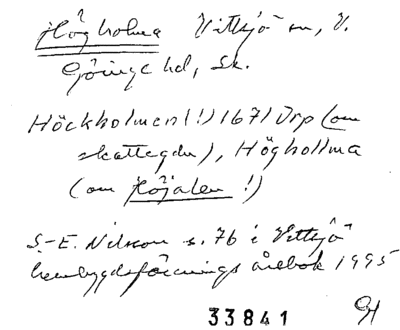 Högholma Vittsjö sn, V.
Göinge hd, Sk.
Höckholmen (!) 1671 Drp (om
skattegdn), Högholma
(om Höjalen !)
S.-E. Nilsson s. 76 i Vittsjö
hembygdsförenings årsbok 1995
33841 GH